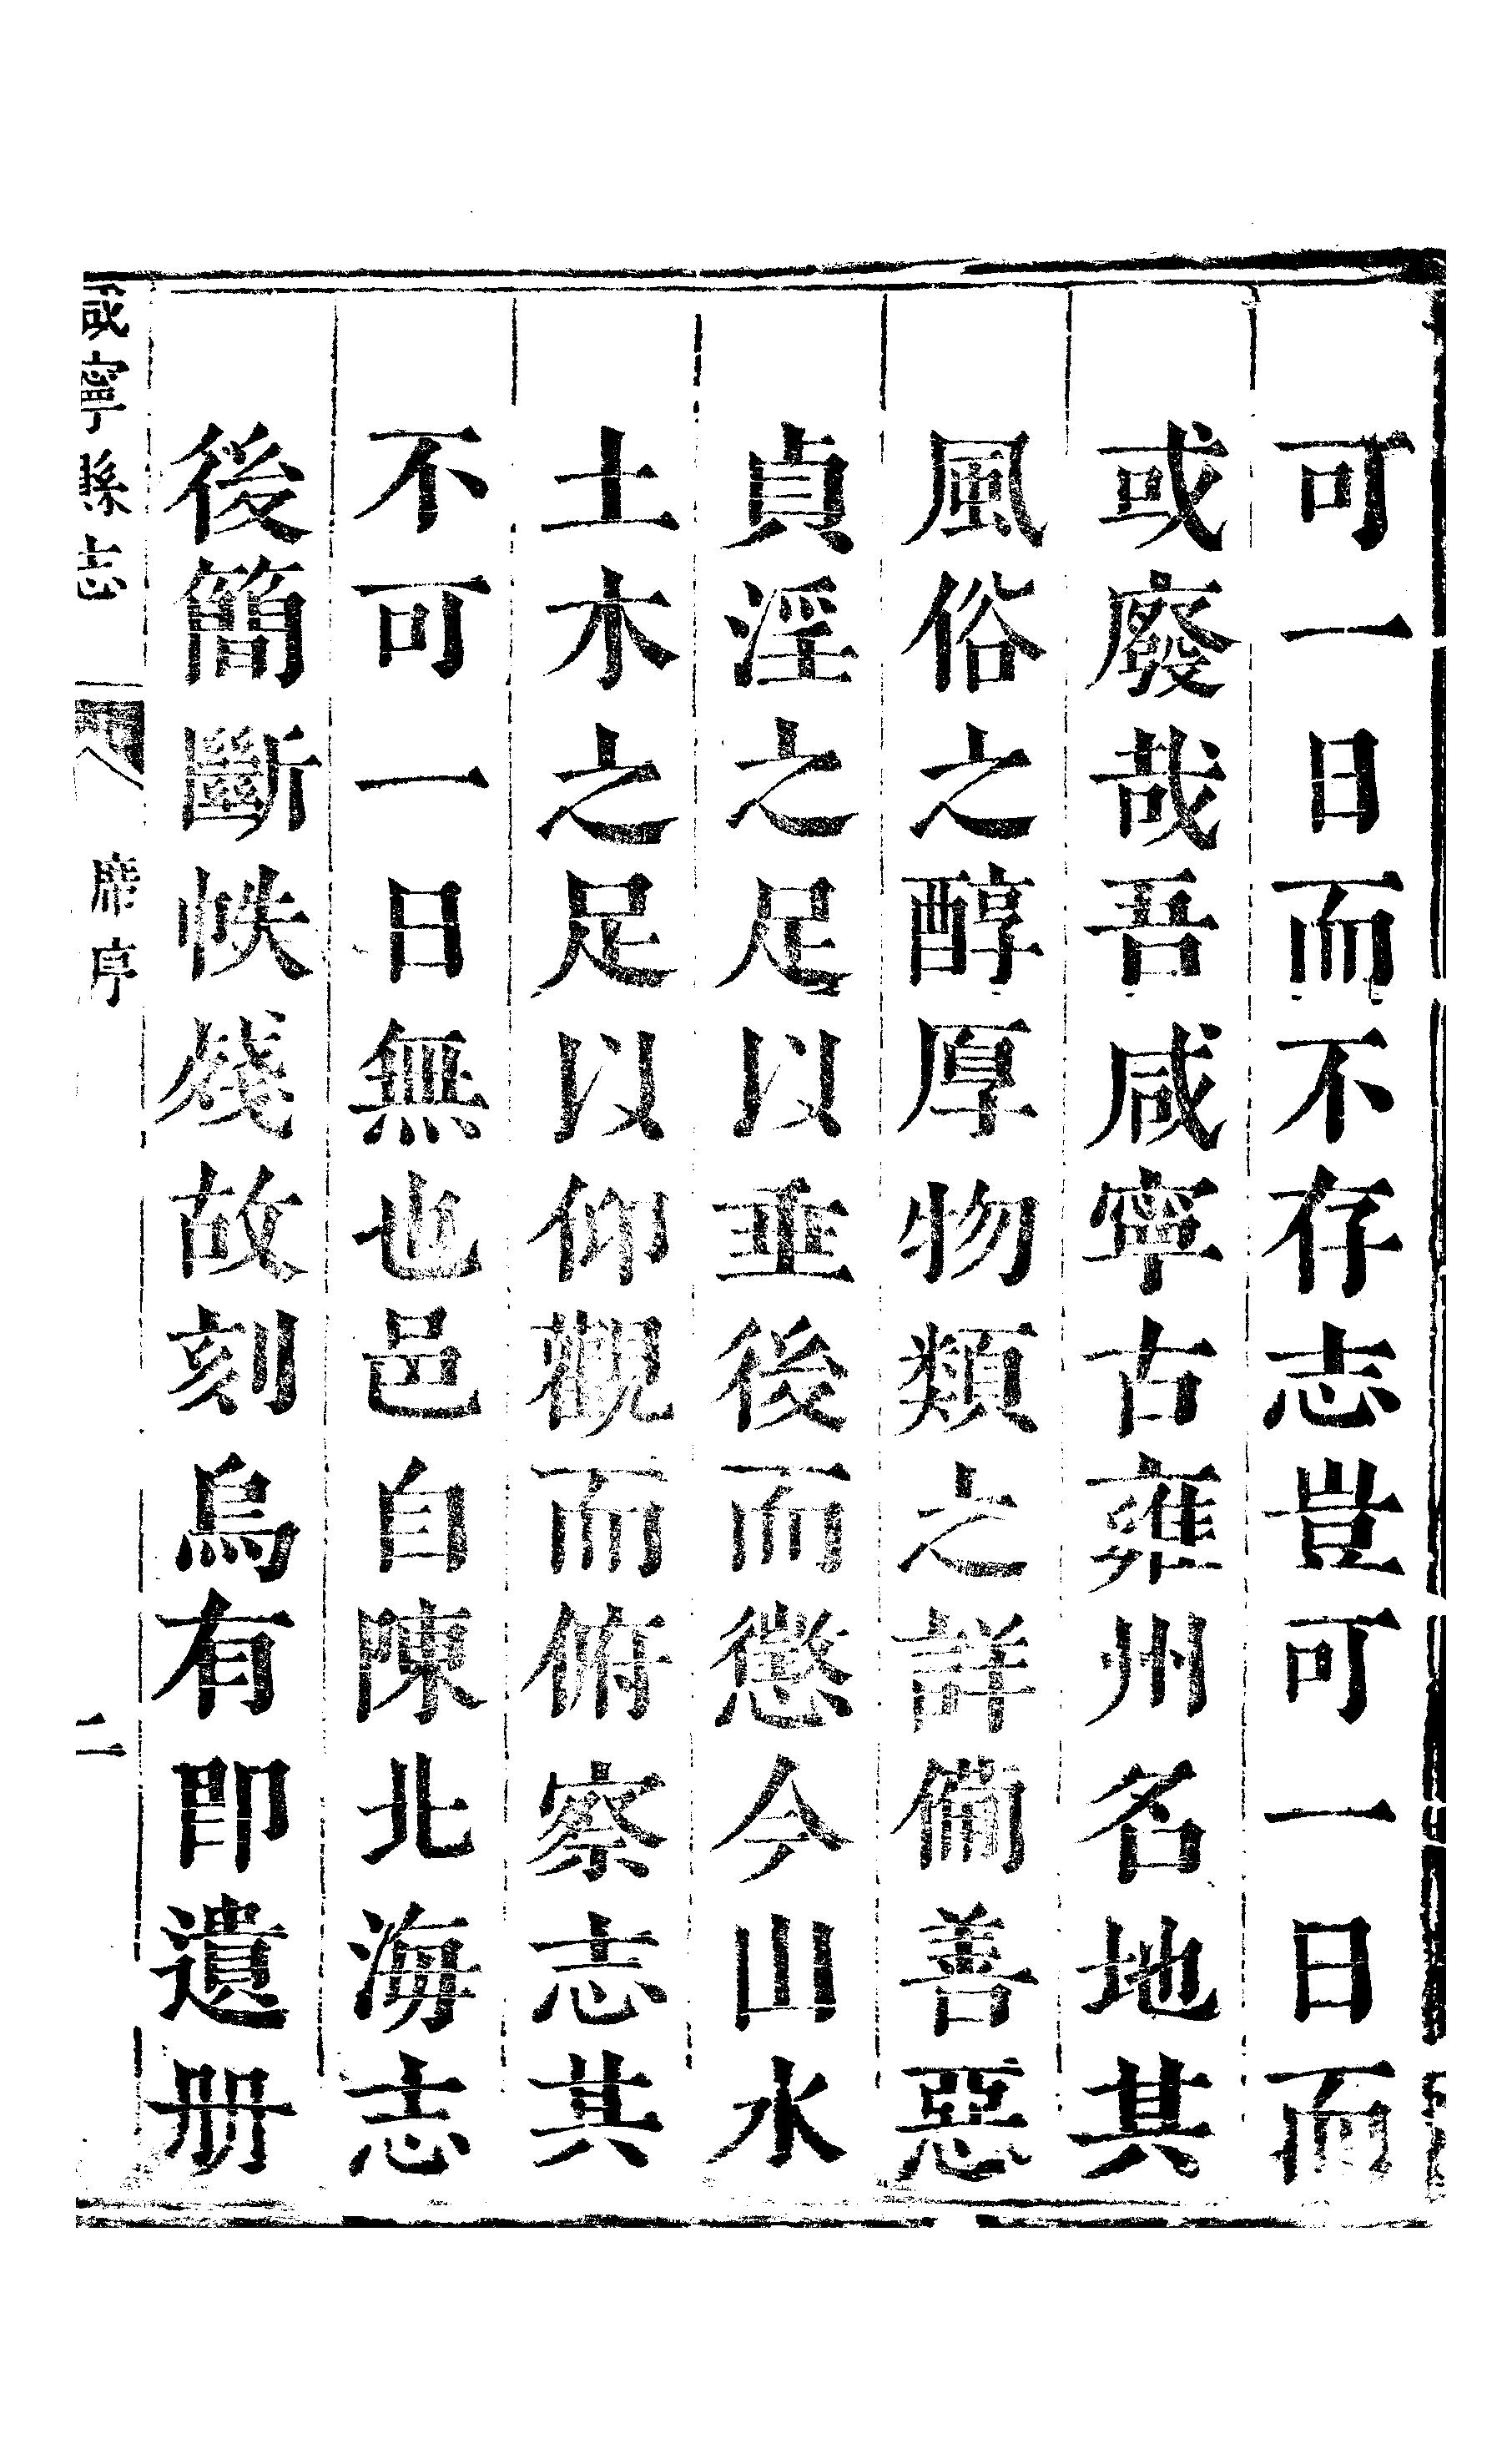 可一日而不存志豈可一日而
或廢哉吾咸寧古雍州名地其
風俗之醇厚物類之詳備善惡
貞淫之足以垂後而懲今山水
土木之足以仰觀而俯察志其
不可一日無也邑自陳北海志
後簡斷帙殘故刻烏有即遺册
咸寧縣志
席序
二